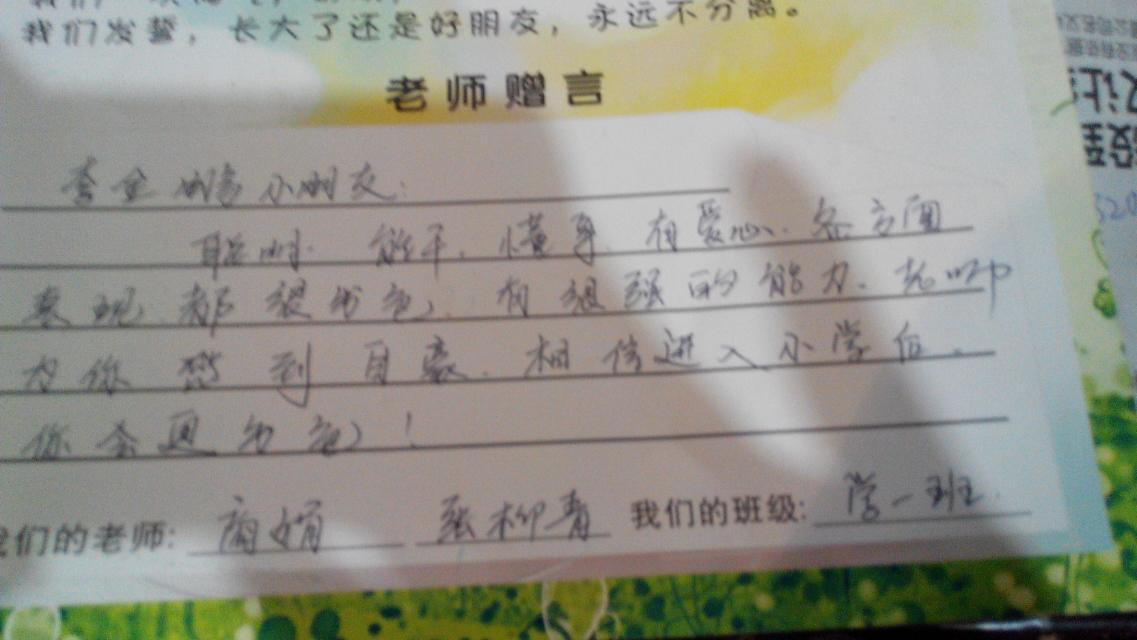 我们发誓，长大了还是好朋友，永远不分离。
老师赠言
小朋友：
聪明、能干、懂事、有爱心、各方面
表现都很出色、有很强的能力、老师
为你感到自豪、相信进入小学后、
你会更出色！
我们的老师: 张柳青 我们的班级: 学一班